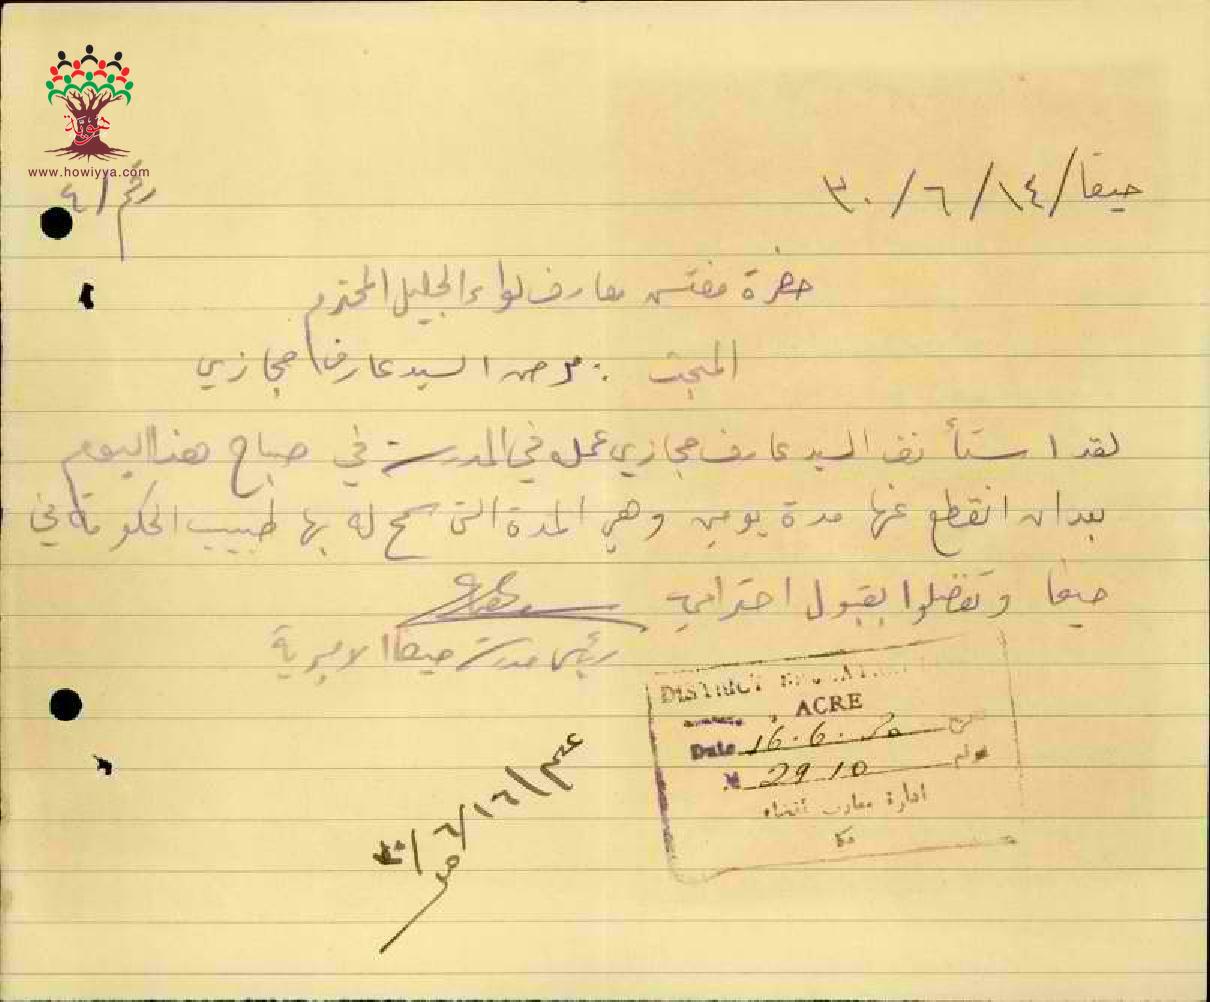 هوية
www.howiyya.com
حيفا / ١٤ / ٦ / ٣٠
رقم / ٤
حضرة مفتش معارف لواء الجليل المحترم
المبحث : مرض السيد عارف حجازي
لقد استأنف السيد عارف حجازي عمله في المدرسة في صباح هذا اليوم
بعد ان انقطع عنها مدة يومين وهي المدة التي سمح له بها طبيب الحكومة في
حيفا وتفضلوا بقبول احترامي
رئيس مدرسة حيفا الاميرية
DISTRICT
ACRE
Date 16.6.30
2910
ادارة معارف قضاء
عكا
١٦/٦/٣٠